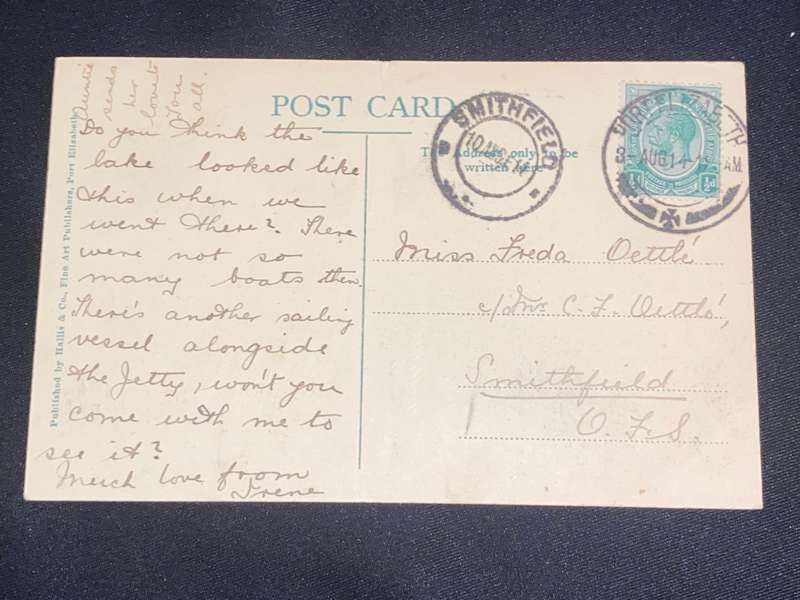 Auntie
sends
her
love to
you
all.
POST CARD
Do you think the
lake looked like
this when we
went there? There
were not so
many boats then.
There's another sailing
vessel alongside
the Jetty, won't you
come with me to
see it?
Much love from
Irene
Published by Hallis & Co., Fine Art Publishers, Port Elizabeth
The Address only to be
written here
SMITHFIELD
10 AUG
PORT ELIZABETH
AUG 14
AM
½d
Miss Freda Oettlé
c/o Mr C. F. Oettlé,
Smithfield
O.F.S.